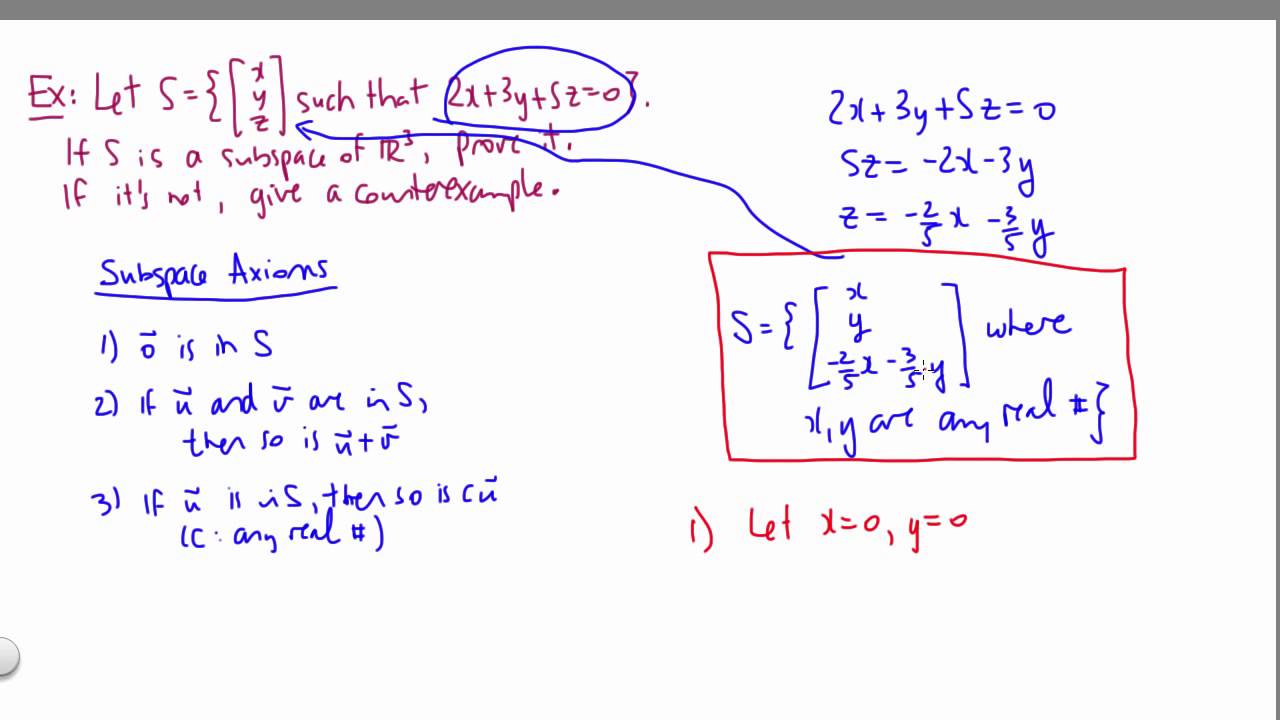 Ex: Let S = { [ x y z ] such that 2x+3y+5z=0 }.
If S is a subspace of ℝ³, prove it.
If it's not, give a counterexample.
Subspace Axioms
1) 0⃗ is in S
2) If u⃗ and v⃗ are in S,
then so is u⃗ + v⃗
3) If u⃗ is in S, then so is cu⃗
(c: any real #)
2x+3y+5z=0
5z = -2x-3y
z = -2/5 x -3/5 y
S = { [ x y -2/5 x - 3/5 y ] where
x, y are any real # }
1) Let x=0, y=0